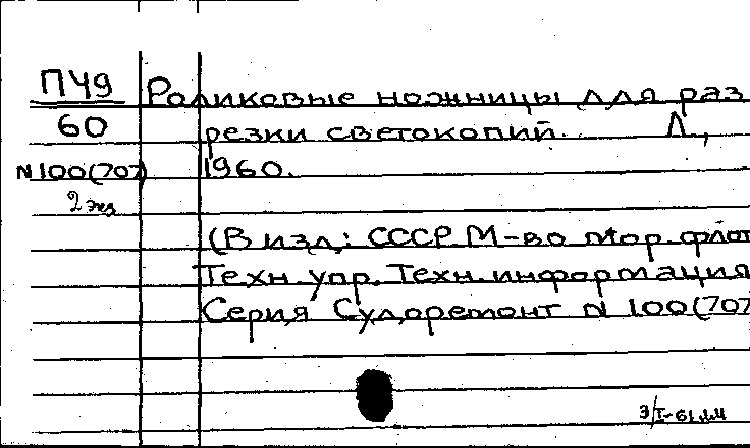 П49 Роликовые ножницы для раз
60 резки светокопий. Л.,
N100(707) 1960.
2 экз
(В изд.: СССР М-во мор. флот
Техн. упр. Техн. информация
Серия Судоремонт N 100(707